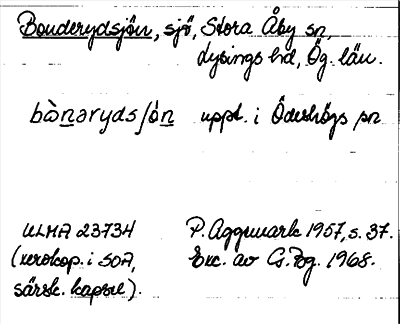 Bonderydsjön, sjö, Stora Åby sn,
Lysings hd, Ög. län.
bònarydsʃö́n uppt. i Ödeshögs sn
ULMA 23734 P. Aggmark 1957, s. 37.
(xerokop. i SOA, Exc. av G. Bg. 1968.
särsk. kapsel).